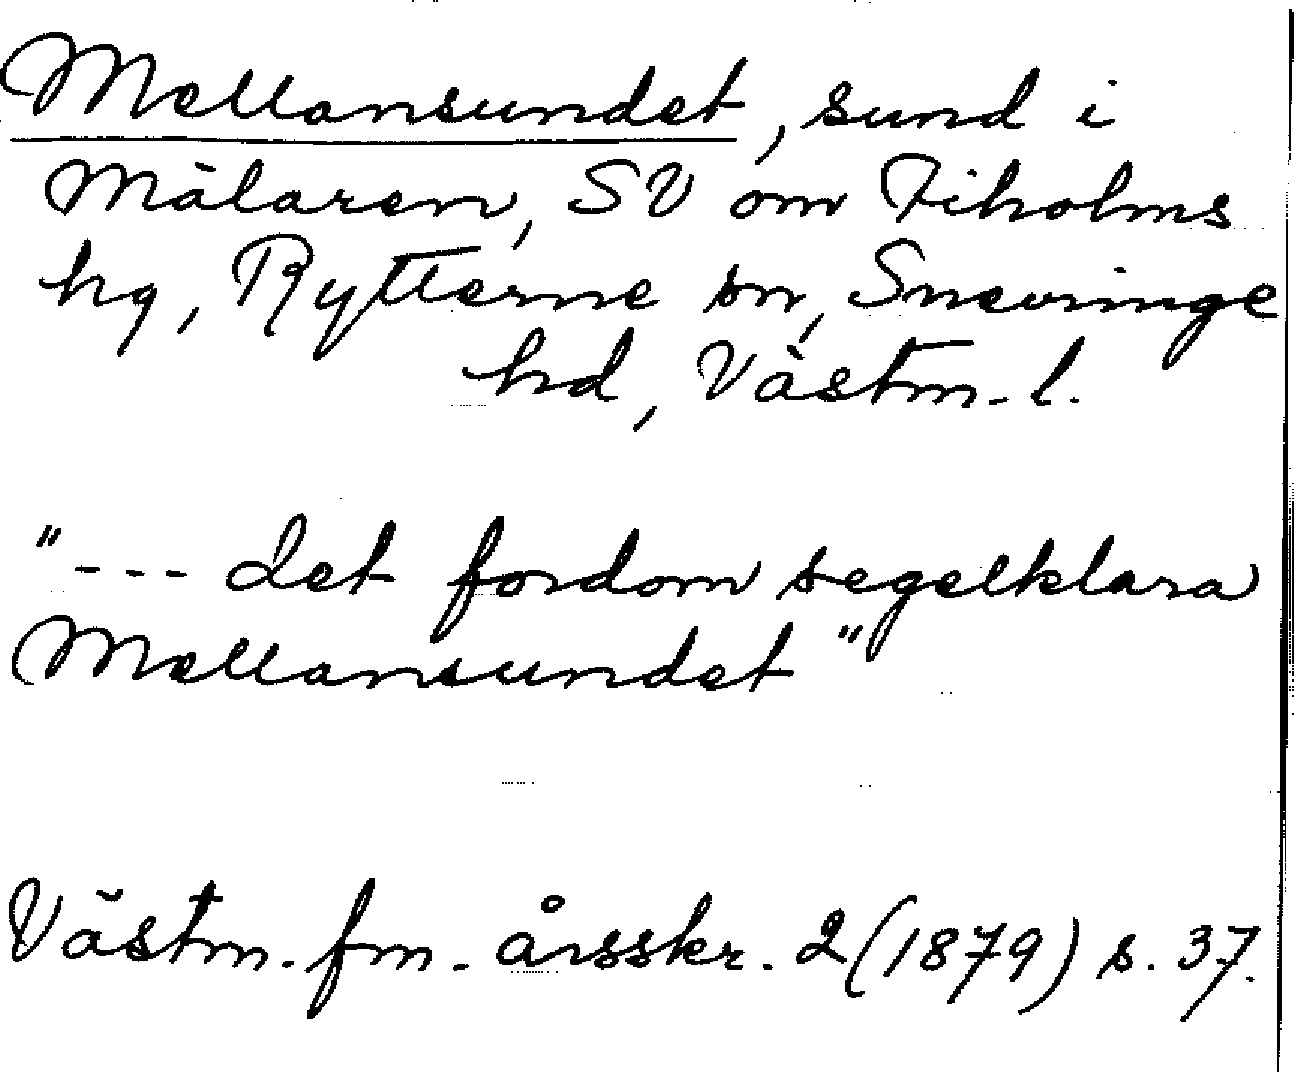 Mellansundet, sund i
Mälaren, SV om Fiholms
hg, Rytterne sn, Snevringe
hd, Västm. l.
"--- det fordom segelklara
Mellansundet"
Västm. fm. årsskr. 2 (1879) s. 37.